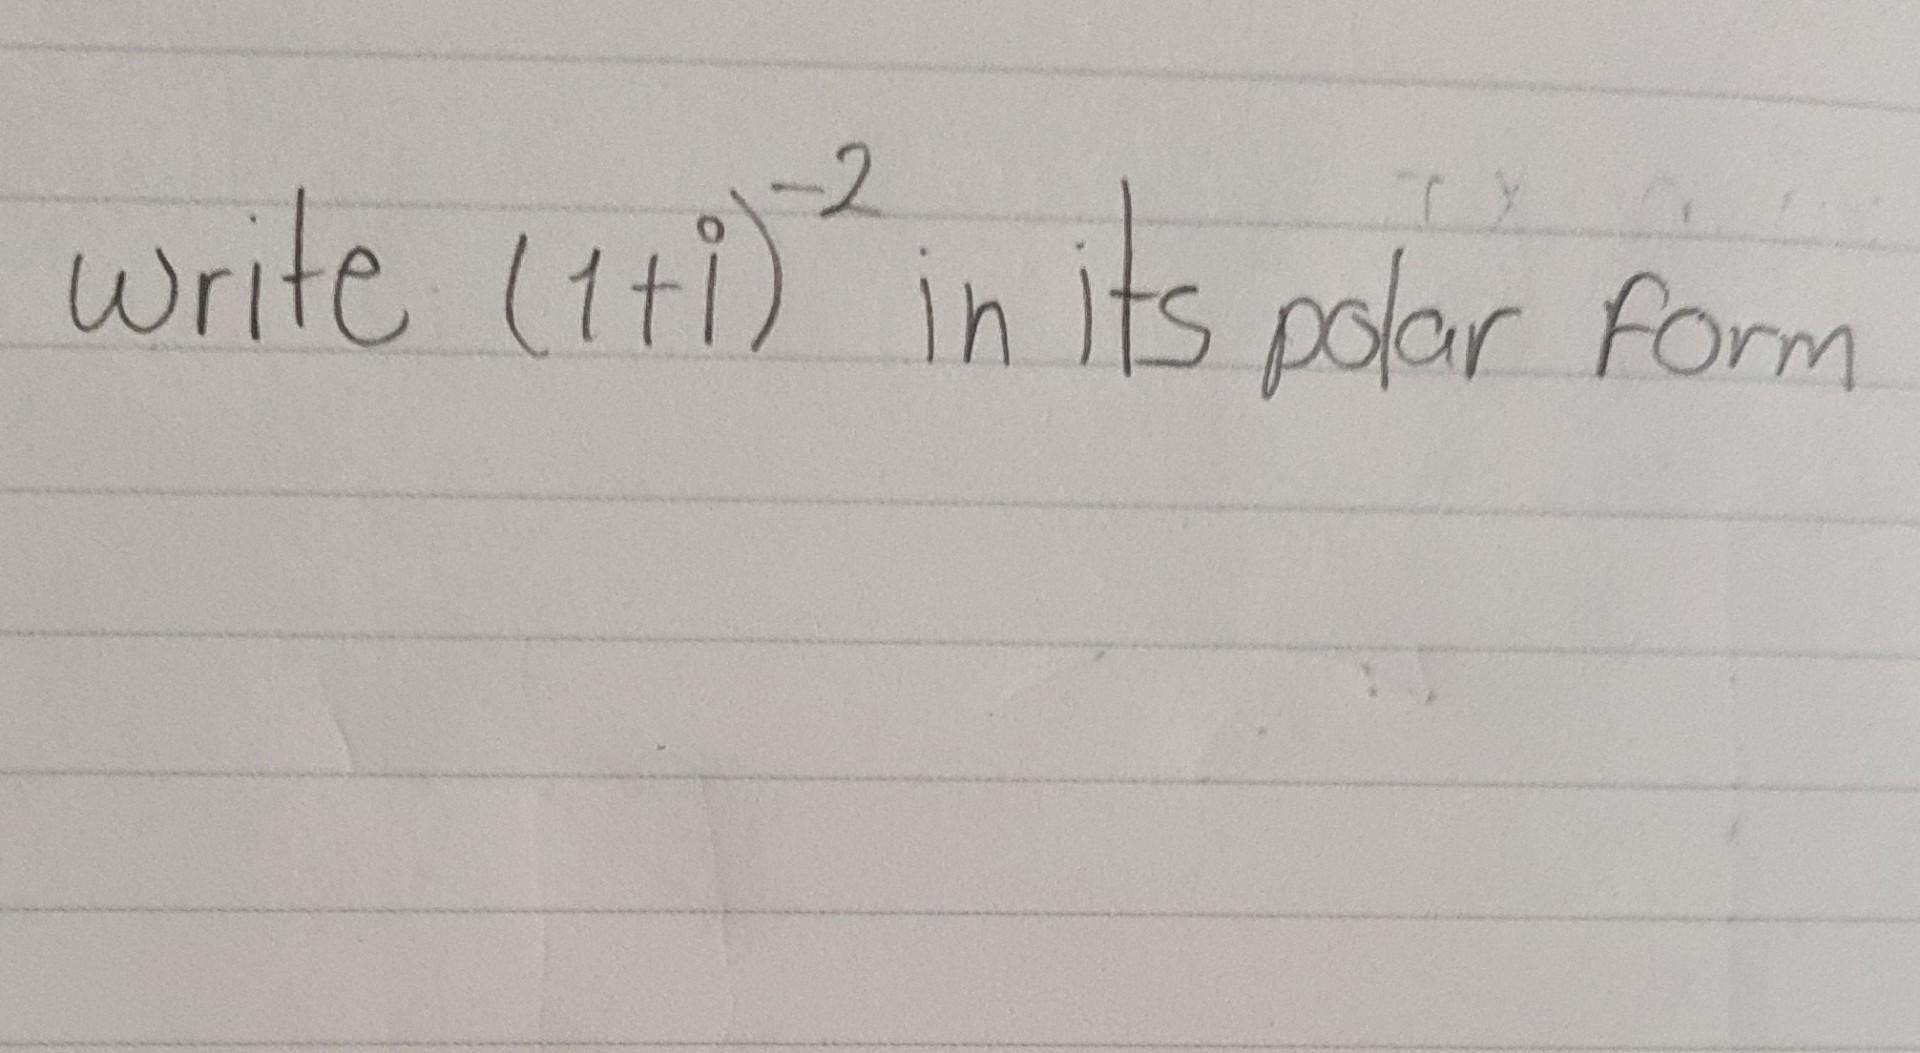 write (1+i)⁻² in its polar form